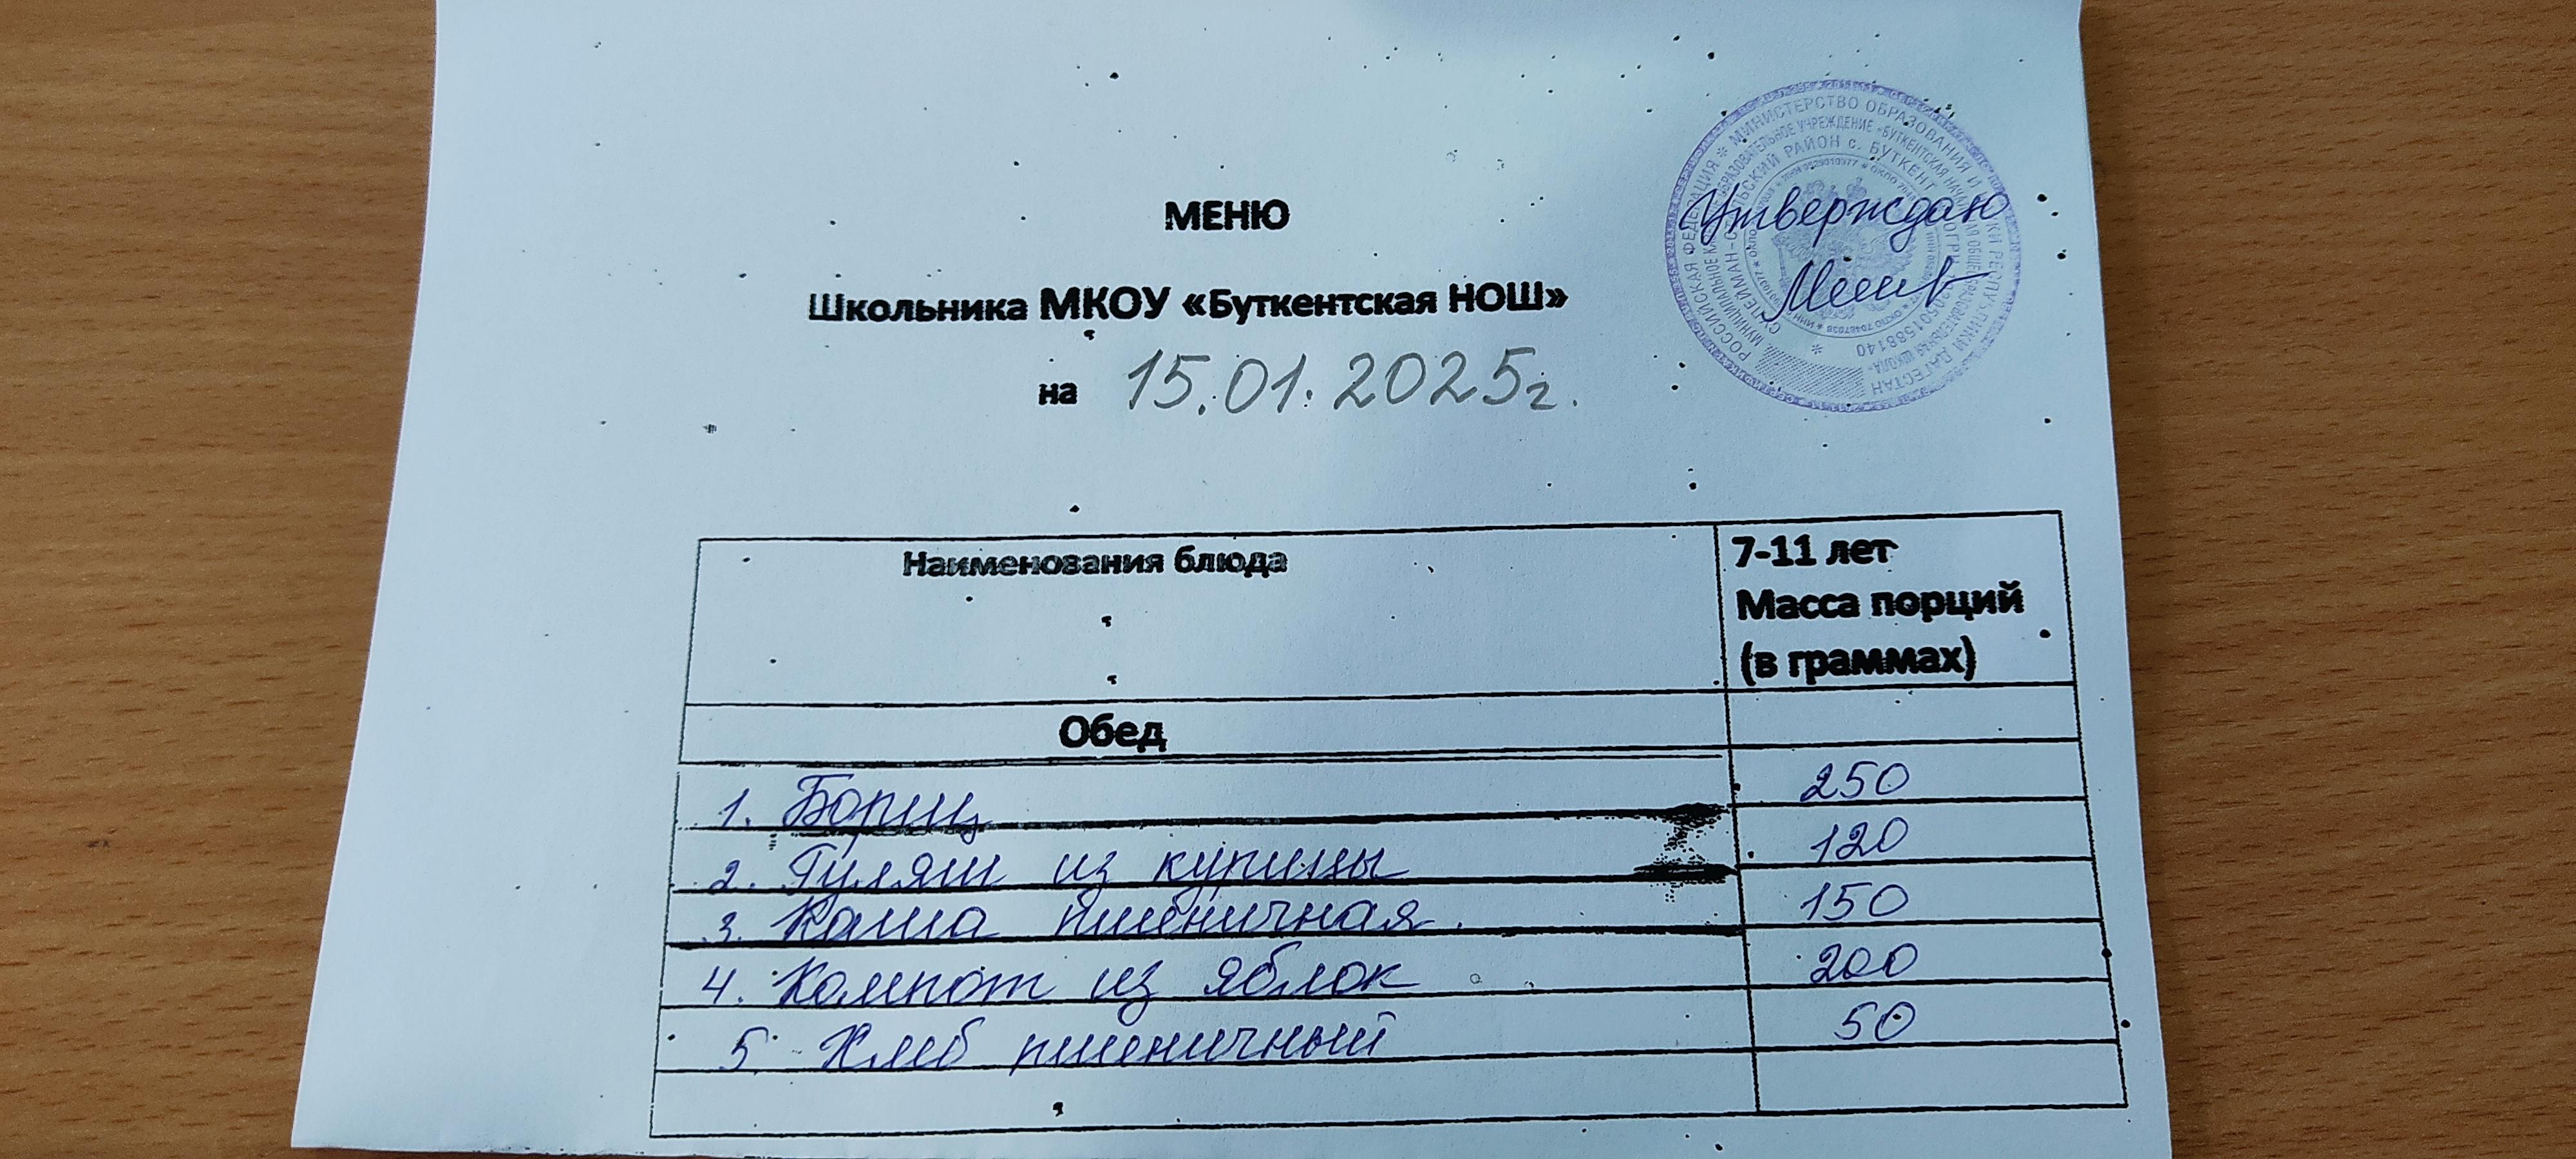 МЕНЮ
Школьника МКОУ «Буткентская НОШ»
на 15.01.2025г.
РОССИЙСКАЯ ФЕДЕРАЦИЯ * МИНИСТЕРСТВО ОБРАЗОВАНИЯ И НАУКИ РЕСПУБЛИКИ ДАГЕСТАН
СУЛЕЙМАН-СТАЛЬСКИЙ РАЙОН с. БУТКЕНТ
Утверждаю
Наименования блюда
7-11 лет
Масса порций
(в граммах)
Обед
1. Борщ 250
2. Гуляш из курицы 120
3. Каша пшеничная. 150
4. Компот из яблок 200
5. Хлеб пшеничный 50